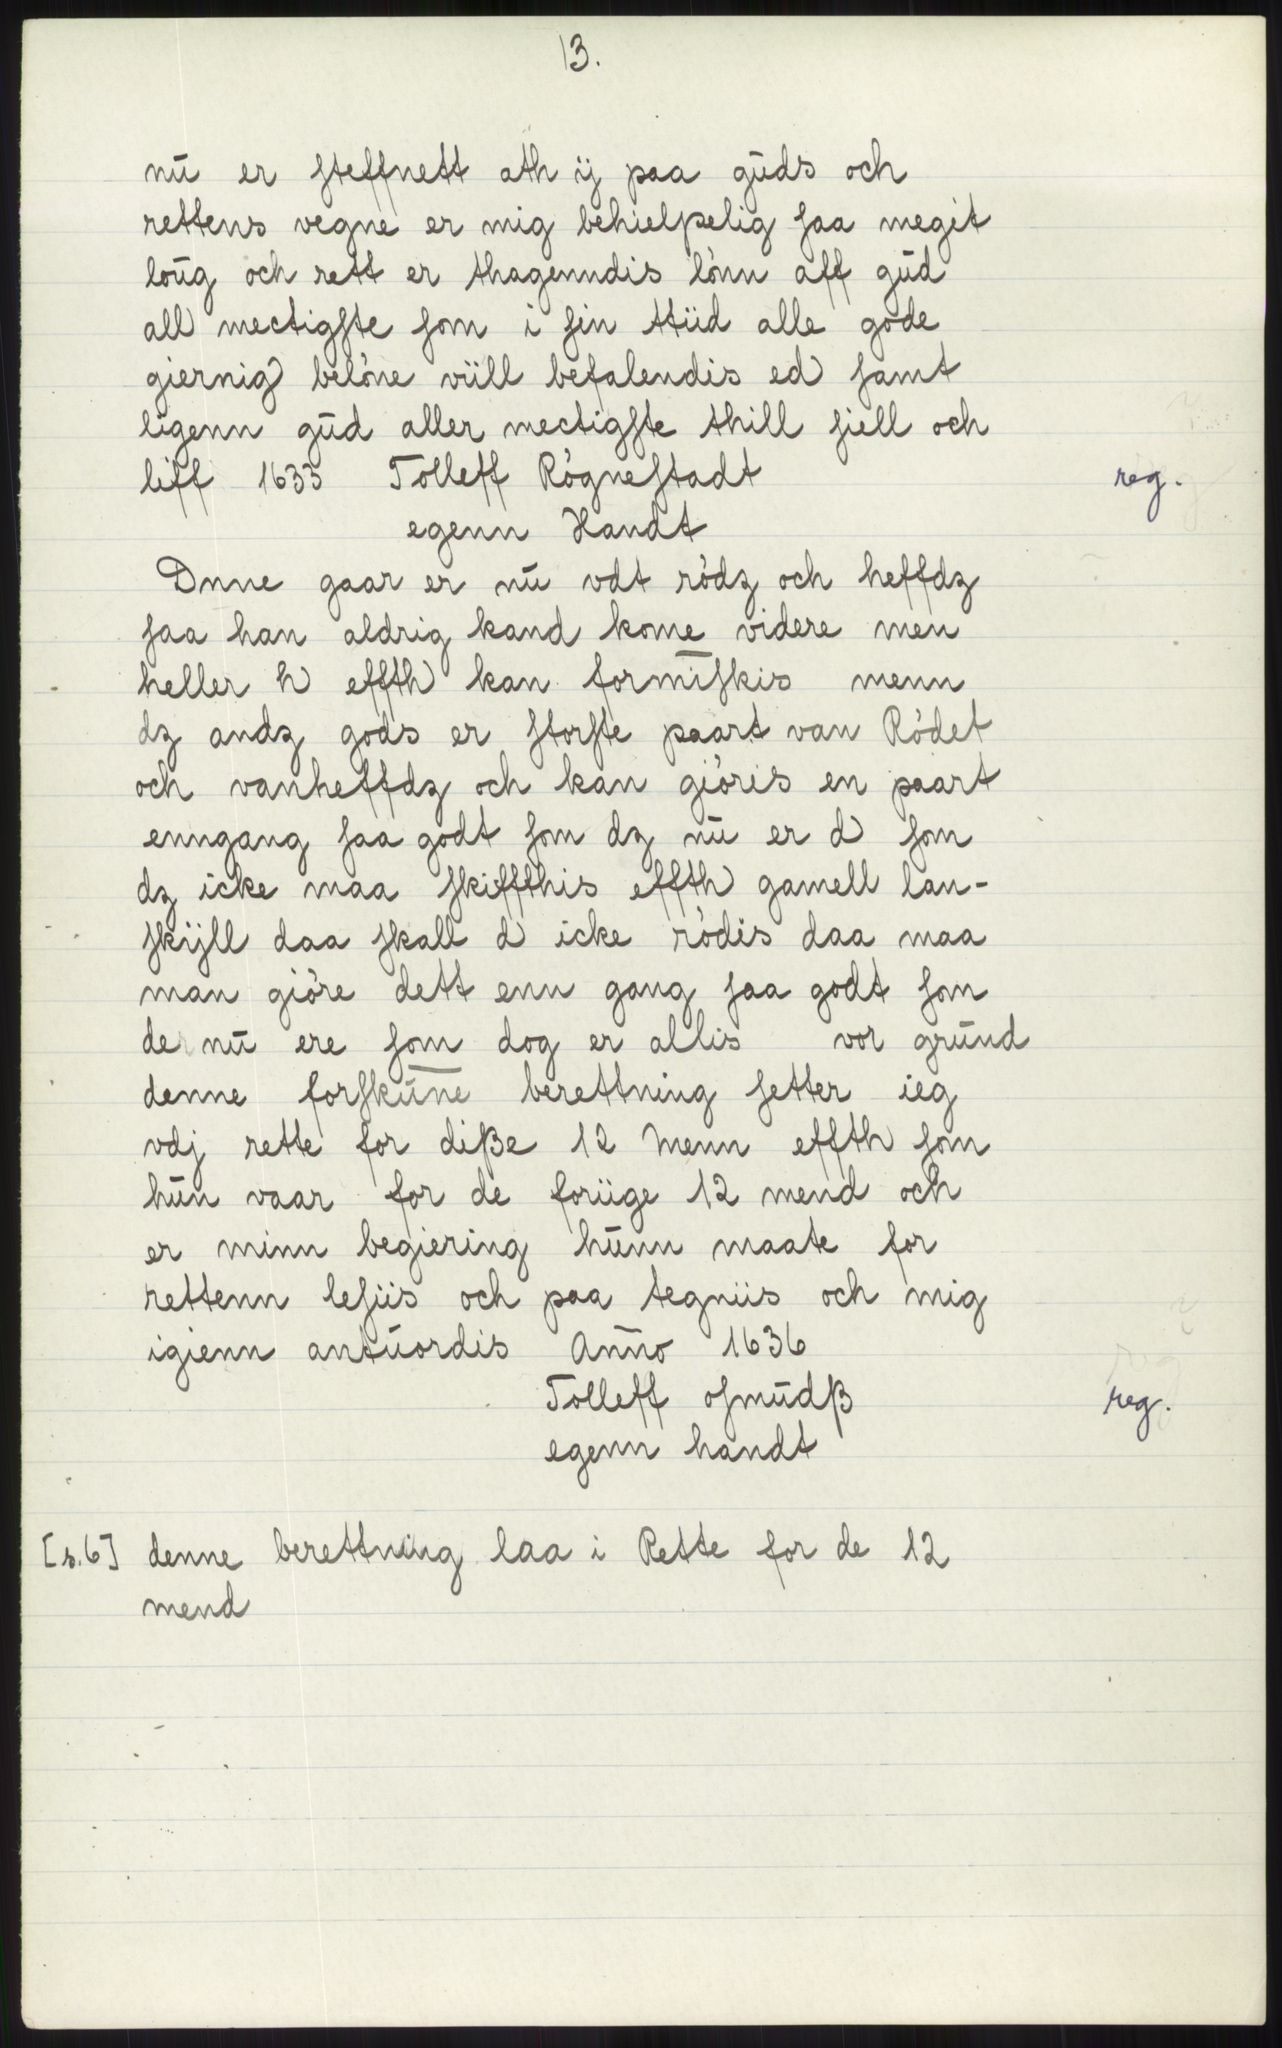 13.
nū er steffnett ath ÿ paa gūds och
rettens vegne er mig behielpelig saa megit
loūg och rett er thagenndis lònn aff gūd
all mectigste som i sin ttiid alle gode
giernig belòne viill befalendis ed samt
ligenn gūd aller mectigste thill siell och
liff 1633 Tolleff Rògnestadt reg.
egenn Handt
Dnne gaar er nū vdt ròdz och heffdz
saa han aldrig kand kome videre men
heller h effth kan formīskis menn
dz andz gods er storste paart van Ròdet
och vanheffdz och kan giòris en paart
enngang saa godt som dz nū er d som
dz icke maa skiffthis effth gamell lan-
skijll daa skall d icke ròdis daa maa
man giòre dett enn gang saa godt som
de nū ere som dog er allis vor grūnd
denne forskūne berettning setter ieg
vdj rette for diße 12 Menn effth som
hūn vaar for de foriige 12 mend och
er minn begiering hūnn maate for
rettenn lesiis och paa tegniis och mig
igienn antūordis Anno 1636
Tolleff osmūdß reg.
egenn handt
[s.6] denne berettning laa i Rette for de 12
mend